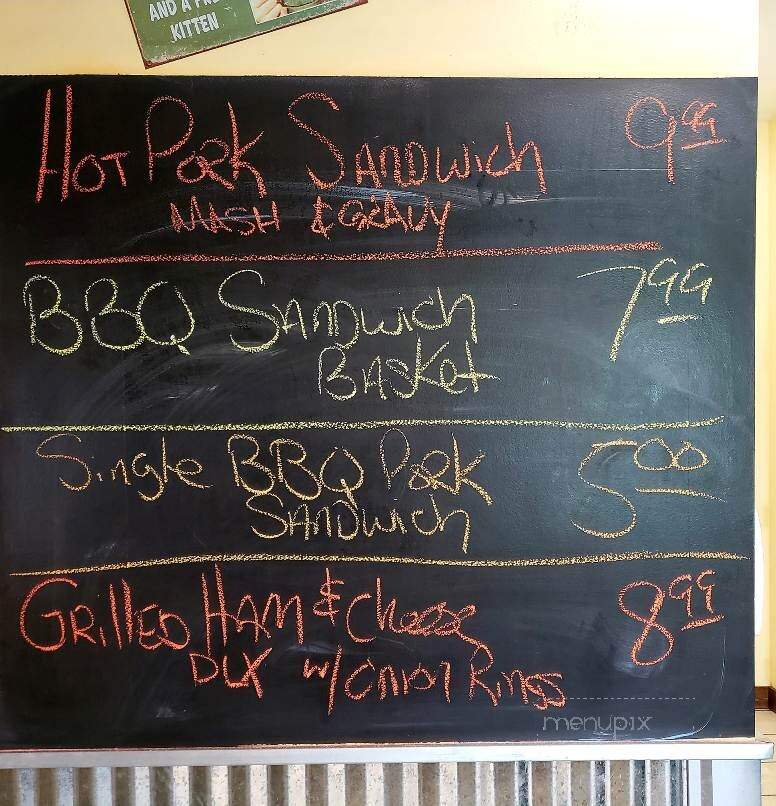 AND A
KITTEN
HOT PORK SANDWICH 9.99
MASH & GRAVY
BBQ SANDWICH 7.99
BASKET
Single BBQ Pork 5.00
SANDWICH
GRILLED HAM & Cheese 8.99
DLX w/ Onion Rings
menupix